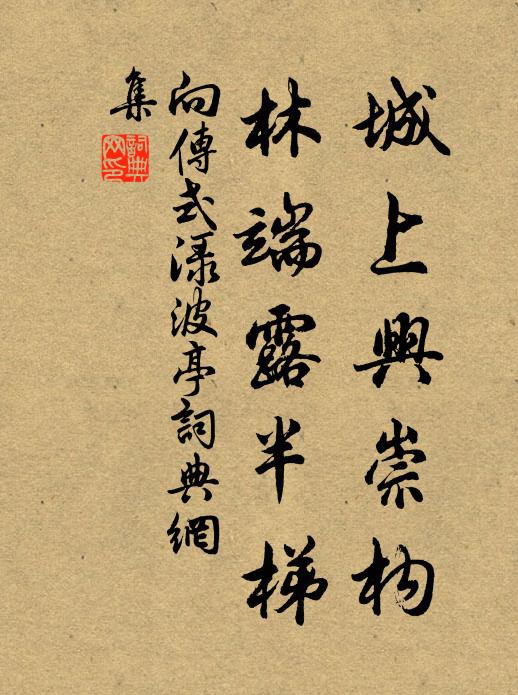 城上興崇构
林端露半梯
向傳式漾波亭詞典網
集
詞典
网印